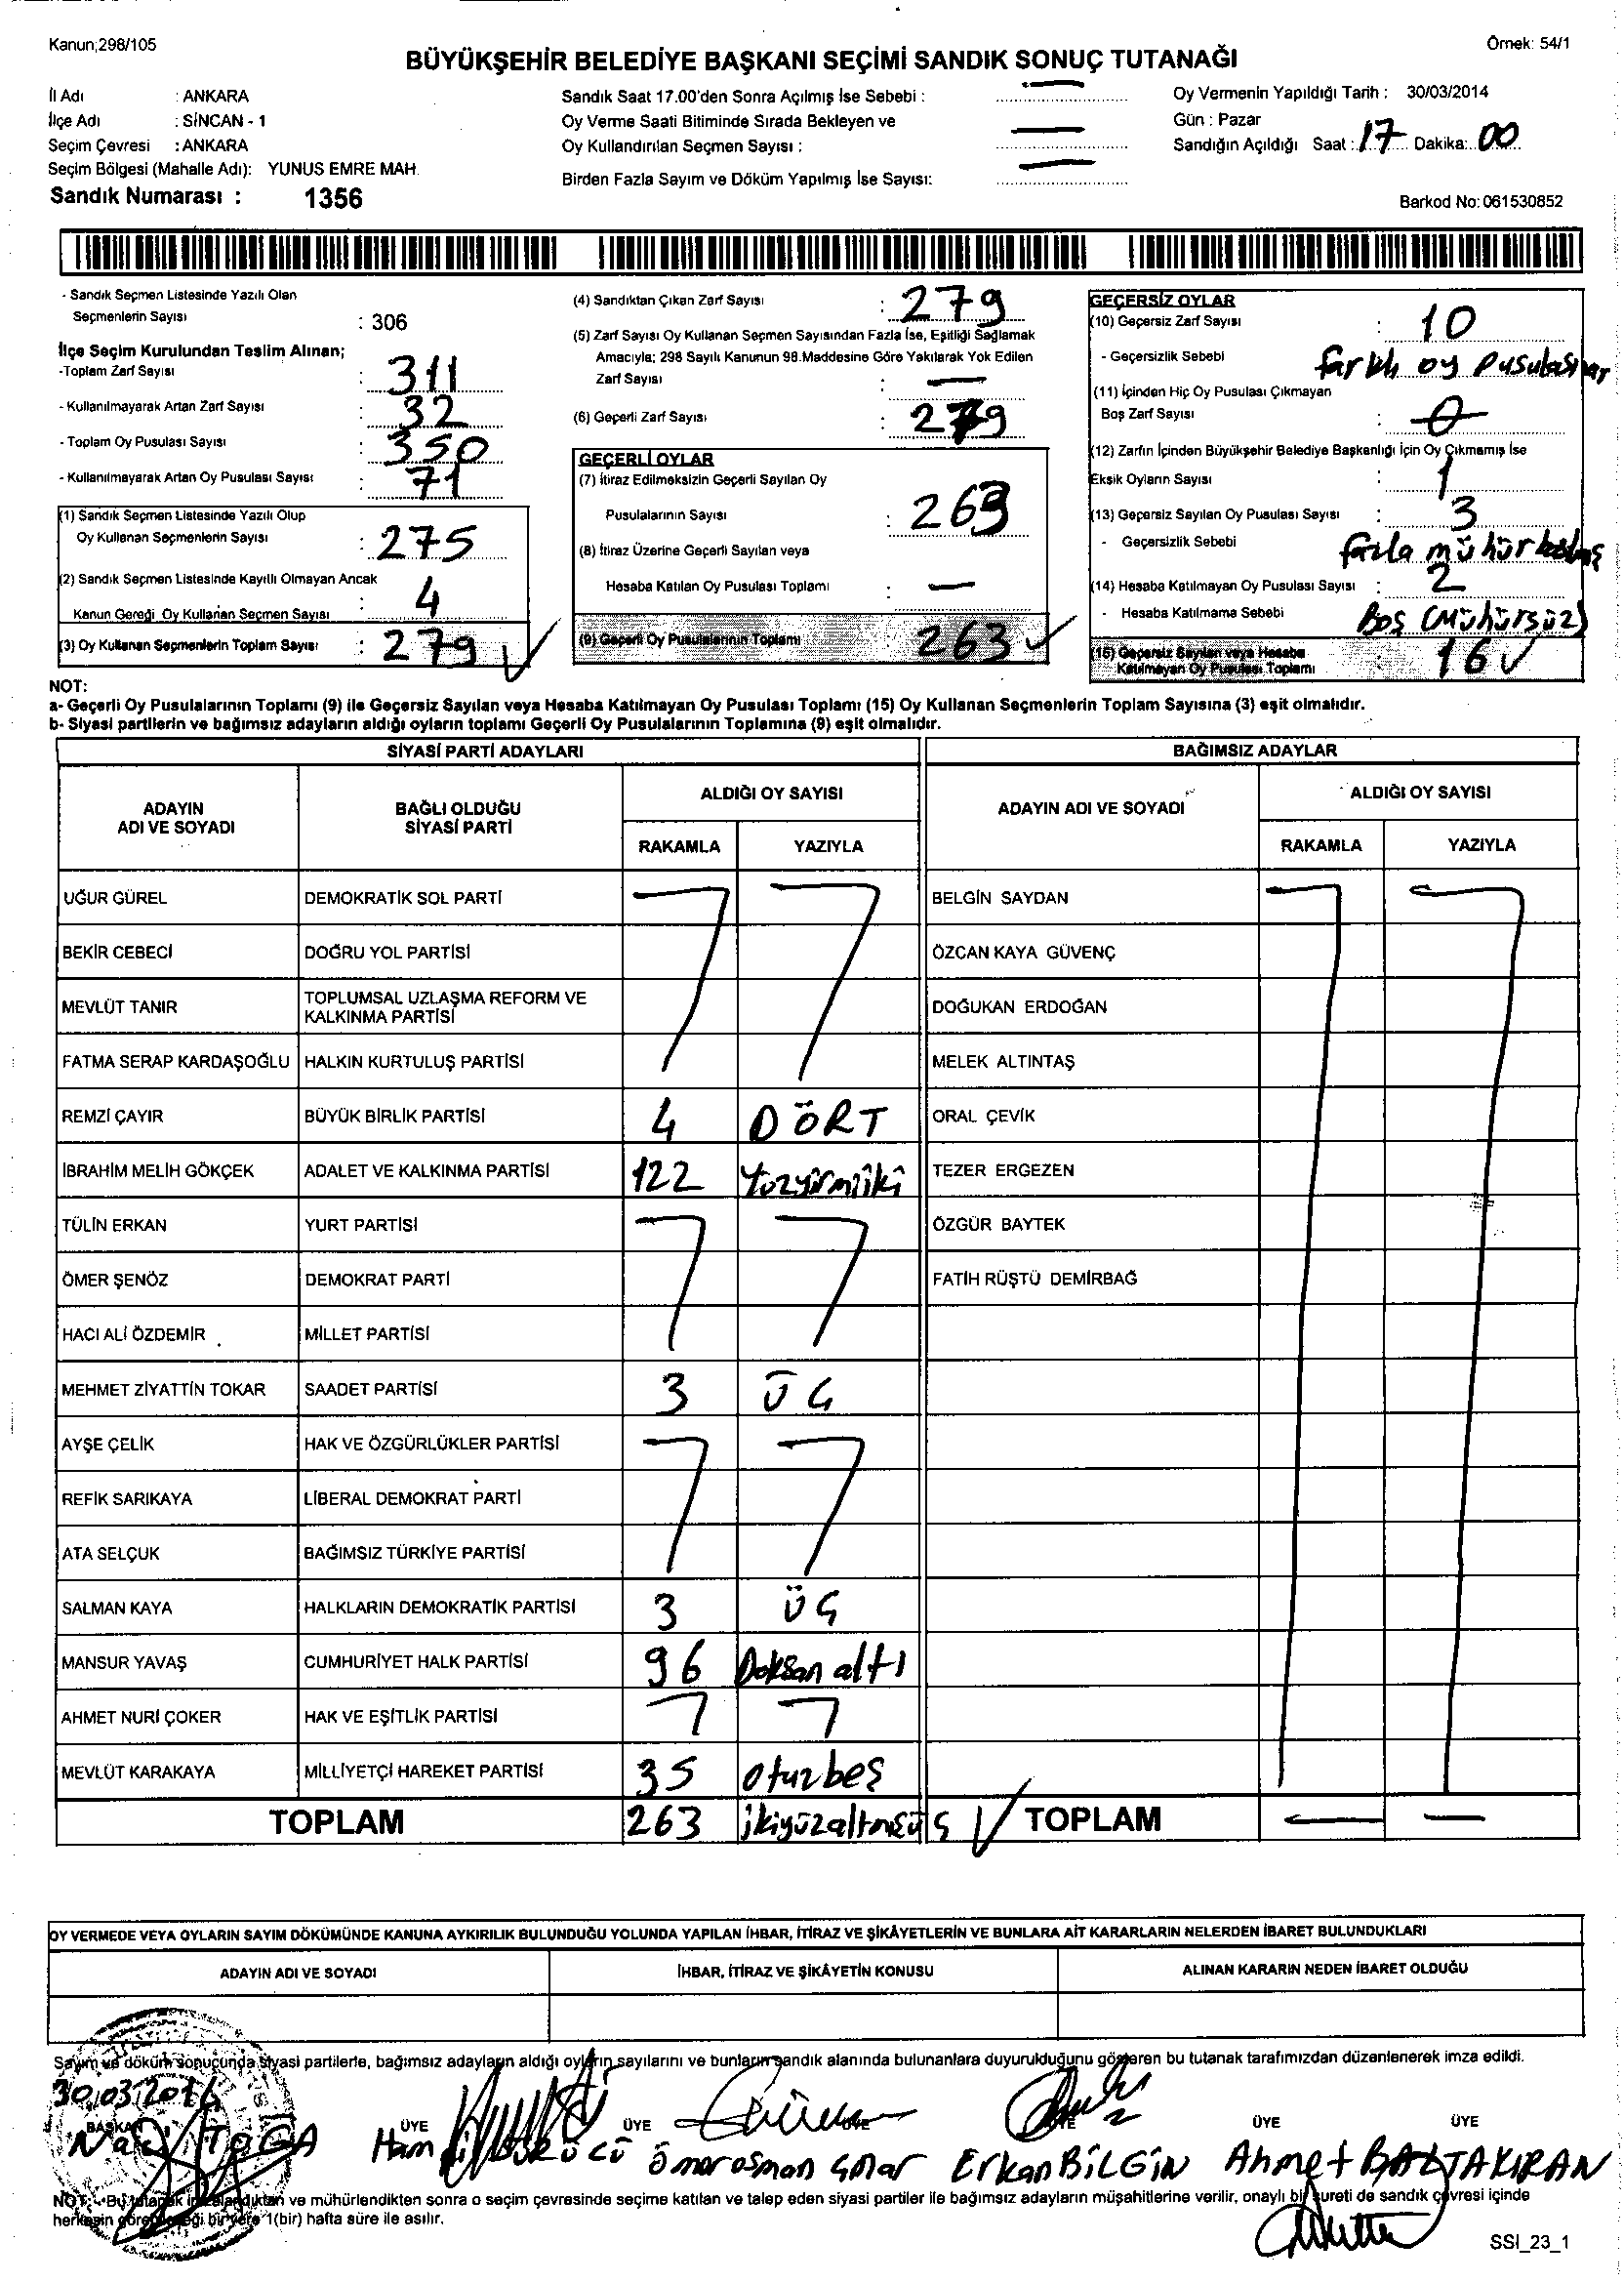 Kanun;298/105
Örnek: 54/1
BÜYÜKŞEHİR BELEDİYE BAŞKANI SEÇİMİ SANDIK SONUÇ TUTANAĞI
İl Adı : ANKARA
İlçe Adı : SİNCAN - 1
Seçim Çevresi : ANKARA
Seçim Bölgesi (Mahalle Adı): YUNUS EMRE MAH.
Sandık Numarası : 1356
Sandık Saat 17.00'den Sonra Açılmış İse Sebebi : —
Oy Verme Saati Bitiminde Sırada Bekleyen ve
Oy Kullandırılan Seçmen Sayısı : —
Birden Fazla Sayım ve Döküm Yapılmış İse Sayısı: —
Oy Vermenin Yapıldığı Tarih : 30/03/2014
Gün : Pazar
Sandığın Açıldığı Saat : 17 Dakika: 00
Barkod No: 061530852
- Sandık Seçmen Listesinde Yazılı Olan
Seçmenlerin Sayısı : 306
İlçe Seçim Kurulundan Teslim Alınan;
-Toplam Zarf Sayısı : 311
- Kullanılmayarak Artan Zarf Sayısı : 32
- Toplam Oy Pusulası Sayısı : 350
- Kullanılmayarak Artan Oy Pusulası Sayısı : 71
(1) Sandık Seçmen Listesinde Yazılı Olup
Oy Kullanan Seçmenlerin Sayısı : 275
(2) Sandık Seçmen Listesinde Kayıtlı Olmayan Ancak
Kanun Gereği Oy Kullanan Seçmen Sayısı : 4
(3) Oy Kullanan Seçmenlerin Toplam Sayısı : 279
(4) Sandıktan Çıkan Zarf Sayısı : 279
(5) Zarf Sayısı Oy Kullanan Seçmen Sayısından Fazla İse, Eşitliği Sağlamak
Amacıyla; 298 Sayılı Kanunun 98.Maddesine Göre Yakılarak Yok Edilen
Zarf Sayısı : —
(6) Geçerli Zarf Sayısı : 279
GEÇERLİ OYLAR
(7) İtiraz Edilmeksizin Geçerli Sayılan Oy
Pusulalarının Sayısı : 263
(8) İtiraz Üzerine Geçerli Sayılan veya
Hesaba Katılan Oy Pusulası Toplamı : —
(9) Geçerli Oy Pusulalarının Toplamı : 263
GEÇERSİZ OYLAR
(10) Geçersiz Zarf Sayısı : 10
- Geçersizlik Sebebi farklı oy pusulasılar
(11) İçinden Hiç Oy Pusulası Çıkmayan
Boş Zarf Sayısı : 0
(12) Zarfın İçinden Büyükşehir Belediye Başkanlığı İçin Oy Çıkmamış İse
Eksik Oyların Sayısı : 1
(13) Geçersiz Sayılan Oy Pusulası Sayısı : 3
- Geçersizlik Sebebi fazla mühür
(14) Hesaba Katılmayan Oy Pusulası Sayısı : 2
- Hesaba Katılmama Sebebi Boş (Mühürsüz)
(15) Geçersiz Sayılan veya Hesaba
Katılmayan Oy Pusulası Toplamı : 16
NOT:
a- Geçerli Oy Pusulalarının Toplamı (9) ile Geçersiz Sayılan veya Hesaba Katılmayan Oy Pusulası Toplamı (15) Oy Kullanan Seçmenlerin Toplam Sayısına (3) eşit olmalıdır.
b- Siyasi partilerin ve bağımsız adayların aldığı oyların toplamı Geçerli Oy Pusulalarının Toplamına (9) eşit olmalıdır.
SİYASİ PARTİ ADAYLARI
BAĞIMSIZ ADAYLAR
ADAYIN ADI VE SOYADI
BAĞLI OLDUĞU SİYASİ PARTİ
ALDIĞI OY SAYISI
RAKAMLA YAZIYLA
ADAYIN ADI VE SOYADI
ALDIĞI OY SAYISI
RAKAMLA YAZIYLA
UĞUR GÜREL DEMOKRATİK SOL PARTİ BELGİN SAYDAN
BEKİR CEBECİ DOĞRU YOL PARTİSİ ÖZCAN KAYA GÜVENÇ
MEVLÜT TANIR TOPLUMSAL UZLAŞMA REFORM VE KALKINMA PARTİSİ DOĞUKAN ERDOĞAN
FATMA SERAP KARDAŞOĞLU HALKIN KURTULUŞ PARTİSİ MELEK ALTINTAŞ
REMZİ ÇAYIR BÜYÜK BİRLİK PARTİSİ 4 DÖRT ORAL ÇEVİK
İBRAHİM MELİH GÖKÇEK ADALET VE KALKINMA PARTİSİ 122 Yüzyirmiiki TEZER ERGEZEN
TÜLİN ERKAN YURT PARTİSİ ÖZGÜR BAYTEK
ÖMER ŞENÖZ DEMOKRAT PARTİ FATİH RÜŞTÜ DEMİRBAĞ
HACI ALİ ÖZDEMİR MİLLET PARTİSİ
MEHMET ZİYATTİN TOKAR SAADET PARTİSİ 3 ÜÇ
AYŞE ÇELİK HAK VE ÖZGÜRLÜKLER PARTİSİ
REFİK SARIKAYA LİBERAL DEMOKRAT PARTİ
ATA SELÇUK BAĞIMSIZ TÜRKİYE PARTİSİ
SALMAN KAYA HALKLARIN DEMOKRATİK PARTİSİ 3 ÜÇ
MANSUR YAVAŞ CUMHURİYET HALK PARTİSİ 96 Doksan altı
AHMET NURİ ÇOKER HAK VE EŞİTLİK PARTİSİ
MEVLÜT KARAKAYA MİLLİYETÇİ HAREKET PARTİSİ 35 otuzbeş
TOPLAM 263 ikiyüzaltmışüç TOPLAM — —
OY VERMEDE VEYA OYLARIN SAYIM DÖKÜMÜNDE KANUNA AYKIRILIK BULUNDUĞU YOLUNDA YAPILAN İHBAR, İTİRAZ VE ŞİKÂYETLERİN VE BUNLARA AİT KARARLARIN NELERDEN İBARET BULUNDUKLARI
ADAYIN ADI VE SOYADI İHBAR, İTİRAZ VE ŞİKÂYETİN KONUSU ALINAN KARARIN NEDEN İBARET OLDUĞU
Sayım ve döküm sonucunda siyasi partilerle, bağımsız adayların aldığı oyların sayılarını ve bunların sandık alanında bulunanlara duyurulduğunu gösteren bu tutanak tarafımızdan düzenlenerek imza edildi.
30.03.2014
BAŞKAN ÜYE ÜYE ÜYE ÜYE ÜYE
TOGA Ömer osman Çınar Erkan BİLGİN Ahmet BALTAKIRAN
NOT:-Bu tutanak imzalandıktan ve mühürlendikten sonra o seçim çevresinde seçime katılan ve talep eden siyasi partiler ile bağımsız adayların müşahitlerine verilir, onaylı bir sureti de sandık çevresi içinde
herkesin görebileceği bir yere 1(bir) hafta süre ile asılır.
SSI_23_1